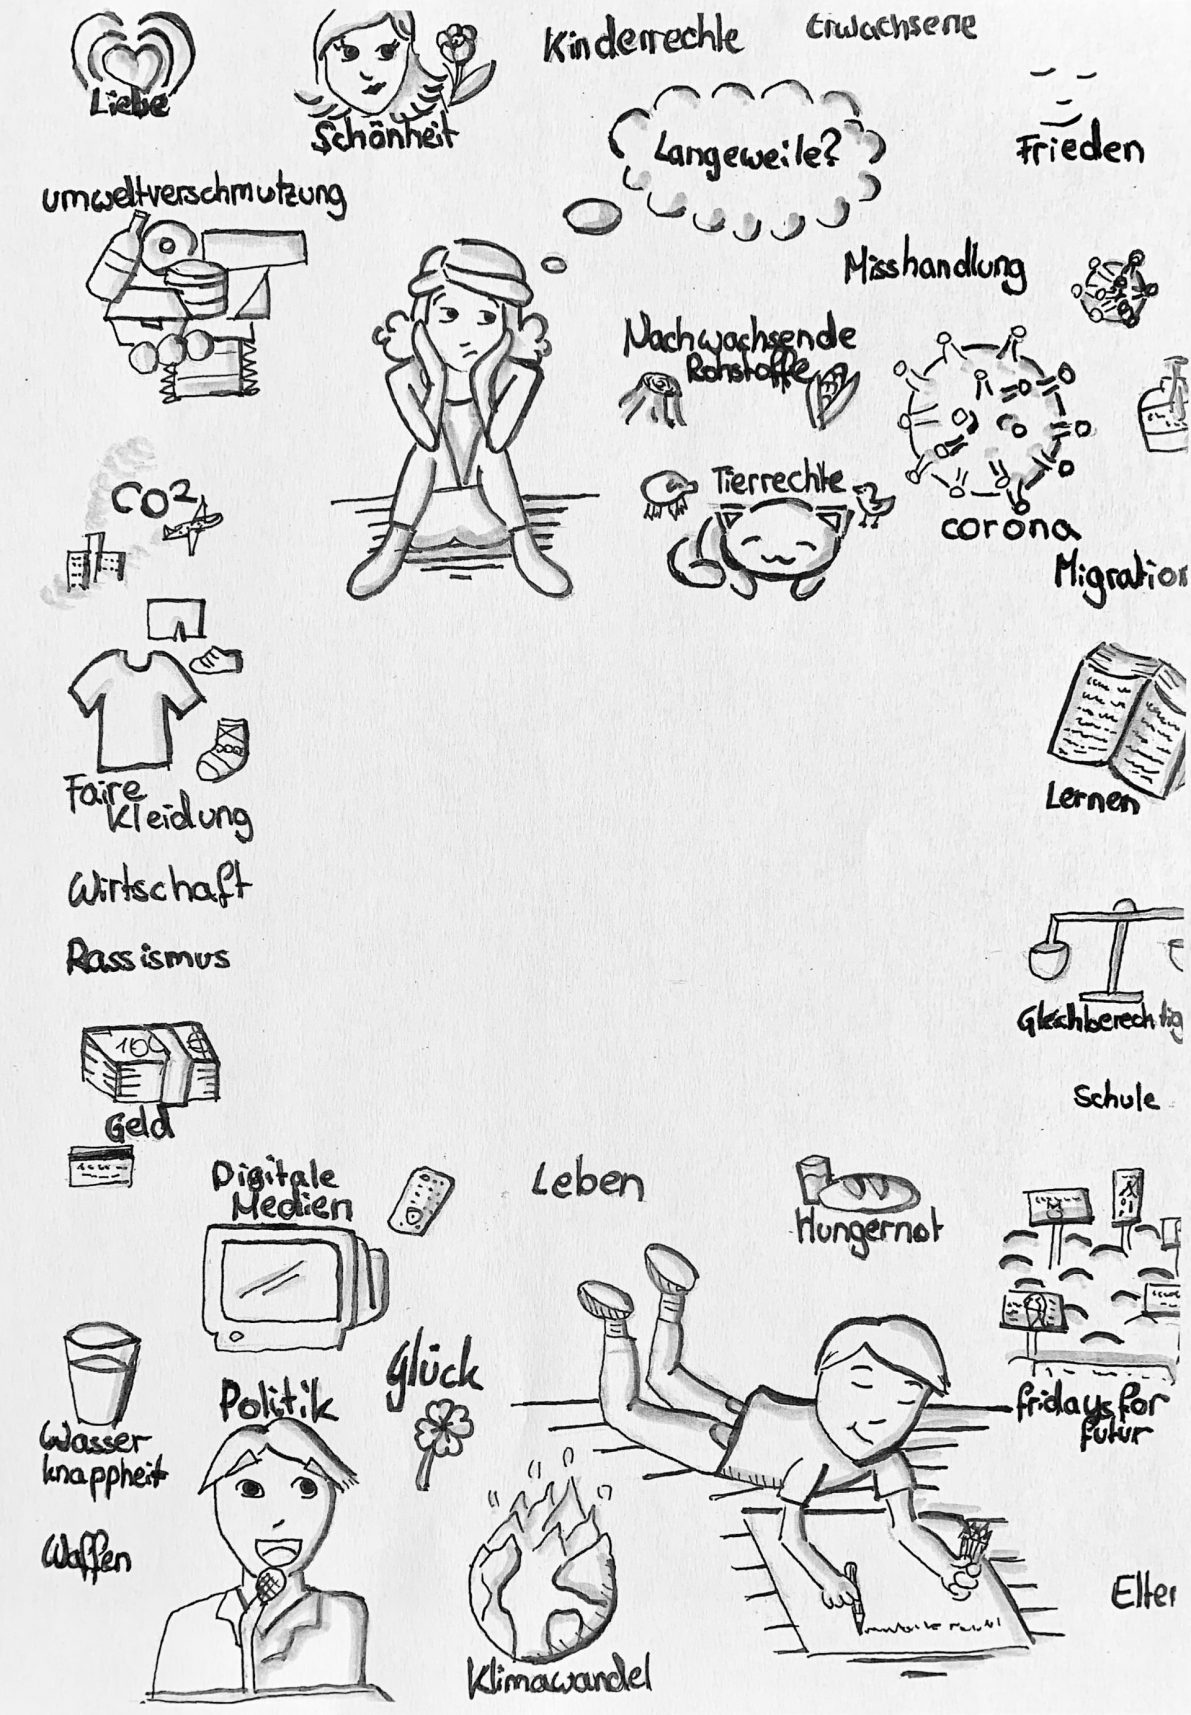 Kinderrechte
Erwachsene
Liebe
Schönheit
Langeweile?
Frieden
Umweltverschmutzung
Misshandlung
Nachwachsende
Rohstoffe
CO2
Tierrechte
corona
Migration
Faire
Kleidung
Lernen
Wirtschaft
Rassismus
Gleichberechtig
100
Geld
Schule
Digitale
Medien
Leben
Hungernot
Glück
Politik
fridays for
futur
Wasser
knappheit
Waffen
Elter
Klimawandel